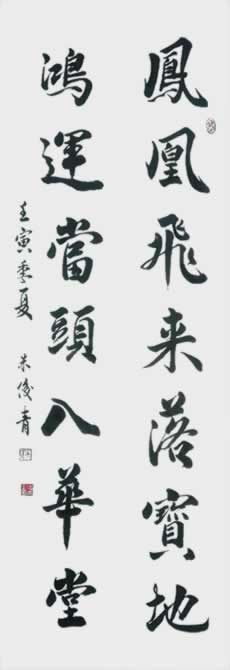 鳳凰飛来落寶地
鴻運當頭入華堂
壬寅季夏 朱俊青